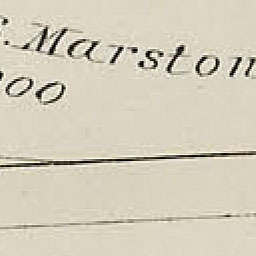 . Marston
00